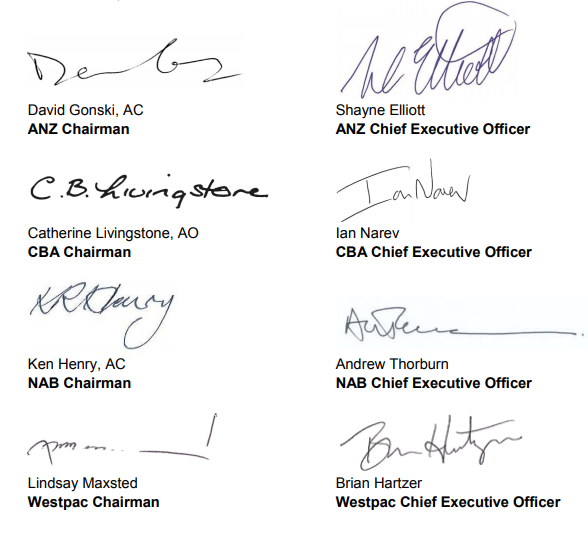 David Gonski, AC
ANZ Chairman
Shayne Elliott
ANZ Chief Executive Officer
C.B. Livingstone
Catherine Livingstone, AO
CBA Chairman
Ian Narev
Ian Narev
CBA Chief Executive Officer
Ken Henry, AC
NAB Chairman
Andrew Thorburn
NAB Chief Executive Officer
Lindsay Maxsted
Westpac Chairman
Brian Hartzer
Westpac Chief Executive Officer